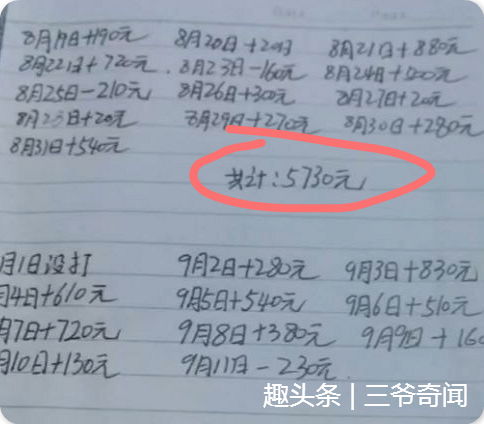 8月19日+190元 8月20日+20元 8月21日+880元
8月22日+720元 8月23日-160元 8月24日+100元
8月25日-210元 8月26日+300元 8月27日+20元
8月28日+20元 8月29日+270元 8月30日+280元
8月31日+540元
共计:5730元
月1日没打 9月2日+280元 9月3日+830元
月4日+610元 9月5日+540元 9月6日+510元
月7日+720元 9月8日+380元 9月9日+160
月10日+130元 9月11日-230元
趣头条 | 三爷奇闻